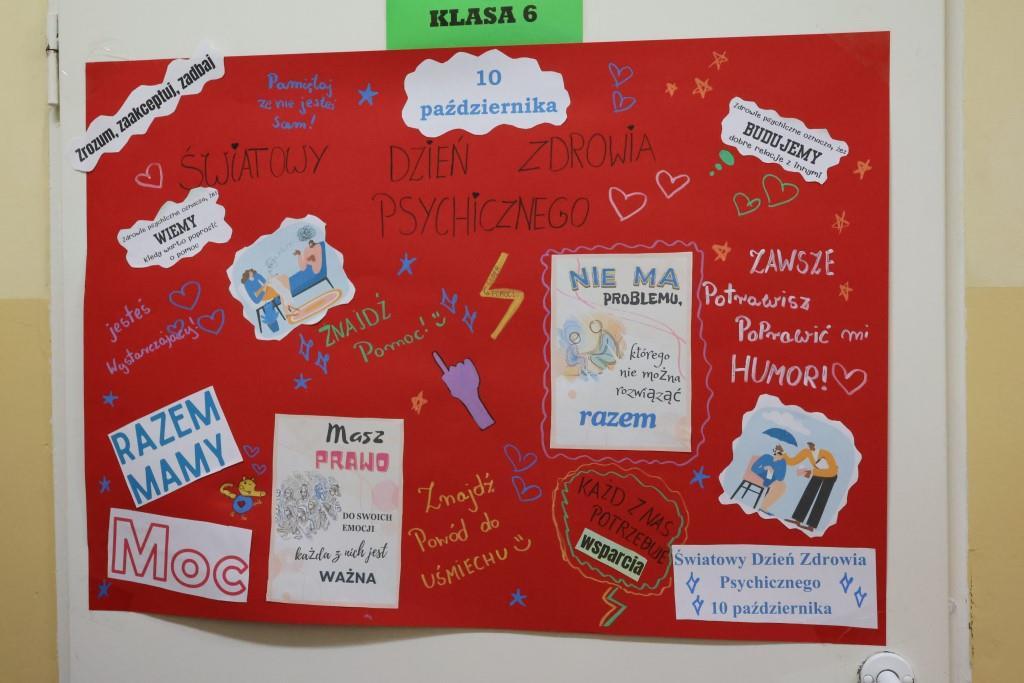 KLASA 6
Zrozum, zaakceptuj, zadbaj
Pamiętaj
że nie jesteś
sam!
10
października
ŚWIATOWY DZIEŃ ZDROWIA
PSYCHICZNEGO
Zdrowie psychiczne oznacza, żeż
BUDUJEMY
dobre relacje z innymi
Zdrowie psychiczne oznacza, żeż
WIEMY
kiedy warto poprosić
o pomoc
jesteś
Wystarczający!
ZNAJDŹ
Pomoc!
NIE MA
PROBLEMU,
którego
nie można
rozwiązać
razem
ZAWSZE
Potrawisz
Poprawić mi
HUMOR!
RAZEM
MAMY
Moc
Masz
PRAWO
DO SWOICH
EMOCJI
każda z nich jest
WAŻNA
Znajdź
Powód do
UŚMIECHU
KAŻD Z NAS
POTRZEBUJE
wsparcia
Światowy Dzień Zdrowia
Psychicznego
10 października